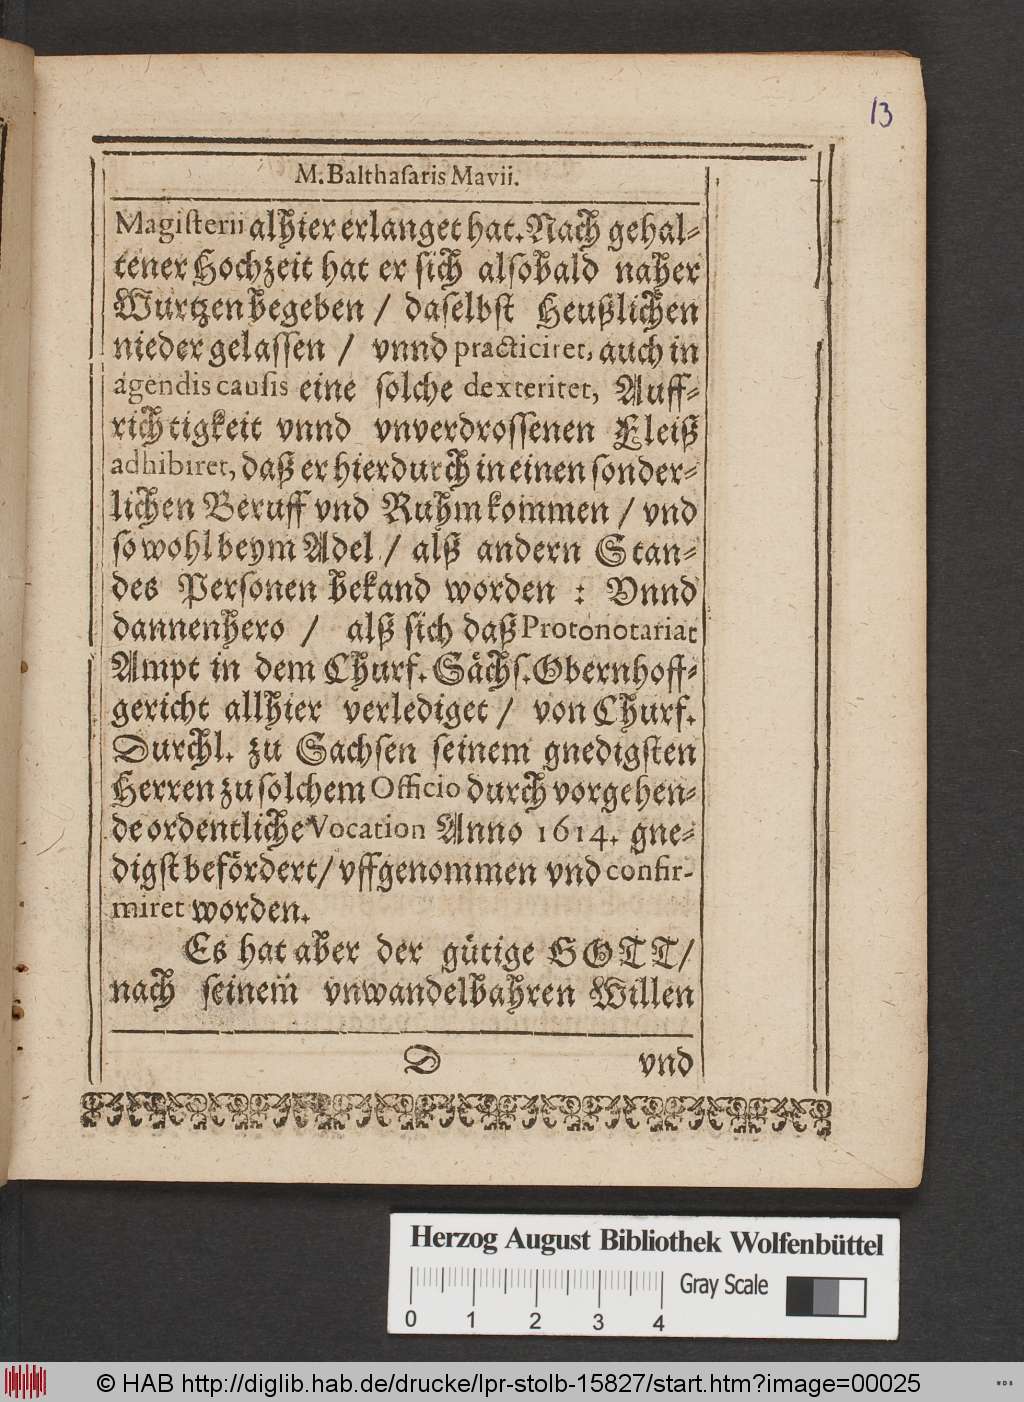 13
M. Balthasaris Mavii.
Magisterii alhier erlanget hat. Nach gehal-
tener Hochzeit hat er sich alsobald naher
Wurtzen begeben / daselbst Heußlichen
nieder gelassen / vnnd practiciret, auch in
agendis causis eine solche dexteritet, Auff-
richtigkeit vnnd vnverdrossenen Fleiß
adhibiret, daß er hierdurch in einen sonder-
lichen Beruff vnd Ruhm kommen / vnd
so wohl beym Adel / alß andern Stan-
des Personen bekand worden : Vnnd
dannenhero / alß sich daß Protonotariat
Ampt in dem Churf. Sächs. Obernhoff-
gericht allhier verlediget / von Churf.
Durchl. zu Sachsen seinem gnedigsten
Herren zu solchem Officio durch vorgehen-
de ordentliche Vocation Anno 1614. gne-
digst befördert / vffgenommen vnd confir-
miret worden.
Es hat aber der gütige GOTT /
nach seinem vnwandelbahren Willen
D vnd
Herzog August Bibliothek Wolfenbüttel
0 1 2 3 4 Gray Scale
© HAB http://diglib.hab.de/drucke/lpr-stolb-15827/start.htm?image=00025